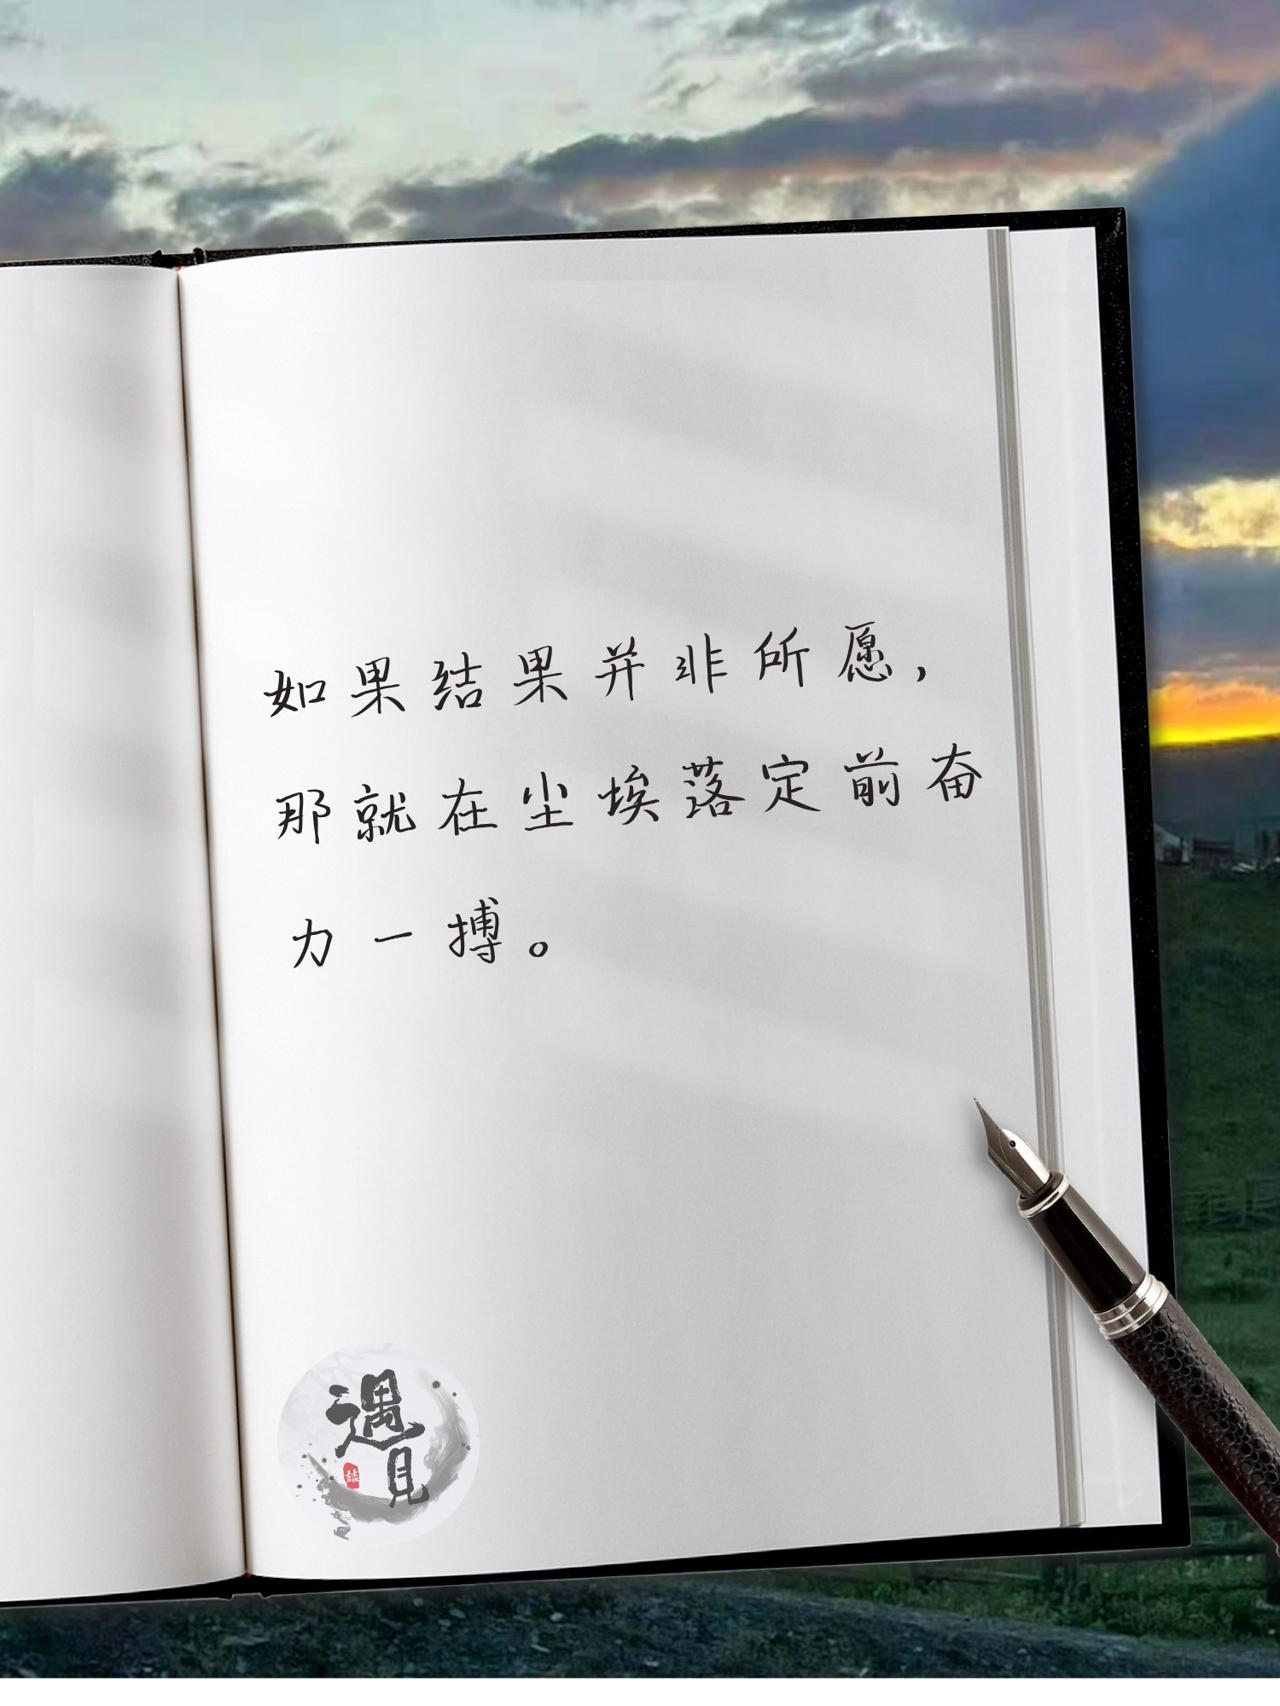 如果结果并非所愿，
那就在尘埃落定前奋
力一搏。
遇見